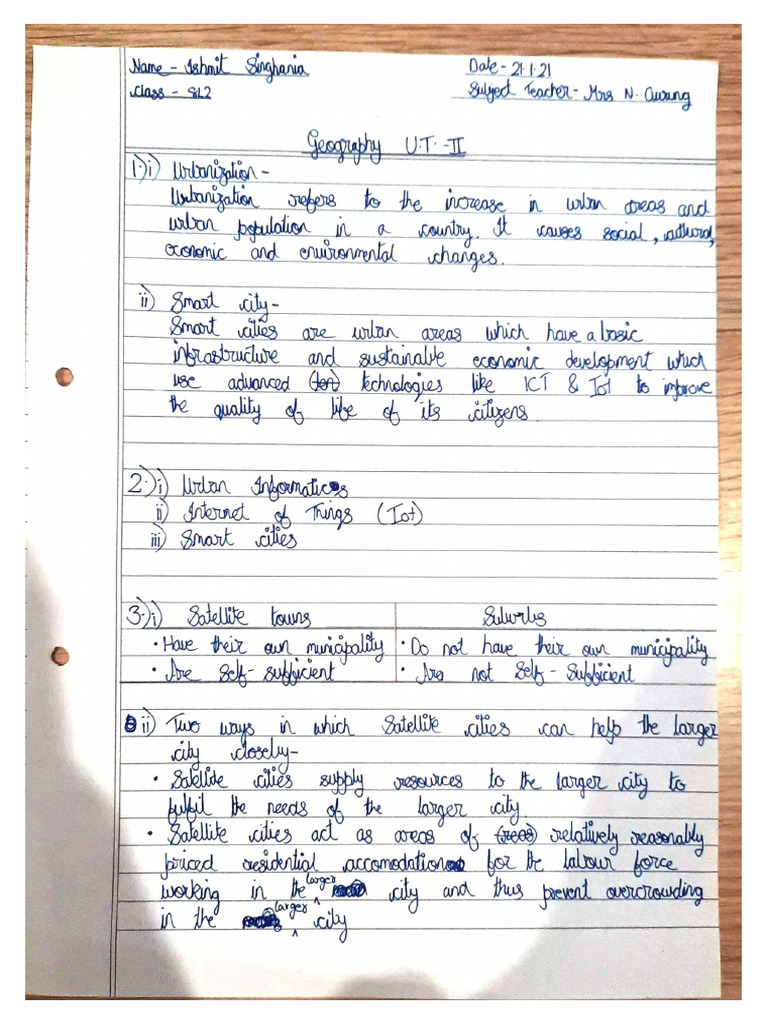 Name - Ishmit Singhania
Date - 21.1.21
Class - 8L2
Subject Teacher - Mrs N. Gurung
Geography U.T. - II
1.) i) Urbanization -
Urbanization refers to the increase in urban areas and
urban population in a country. It causes social, cultural,
economic and environmental changes.
ii) Smart city -
Smart cities are urban areas which have a basic
infrastructure and sustainable economic development which
use advanced technologies like ICT & IoT to improve
the quality of life of its citizens.
2.) i) Urban Informatics
ii) Internet of Things (IoT)
iii) Smart cities
3.) i) Satellite towns Suburbs
• Have their own municipality • Do not have their own municipality
• Are Self-sufficient • Are not Self-Sufficient
ii) Two ways in which Satellite cities can help the larger
city closely -
• Satellite cities supply resources to the larger city to
fulfil the needs of the larger city
• Satellite cities act as areas of (areas) relatively reasonably
priced residential accomodation for the labour force
working in the larger city and thus prevent overcrowding
in the larger city